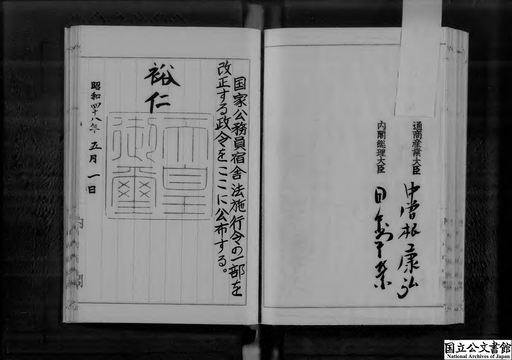 通商産業大臣 中曽根康弘
内閣総理大臣 田中角榮
国家公務員宿舎法施行令の一部を
改正する政令をここに公布する。
裕仁
天皇
御璽
昭和四十八年五月一日
内閣
国立公文書館
National Archives of Japan